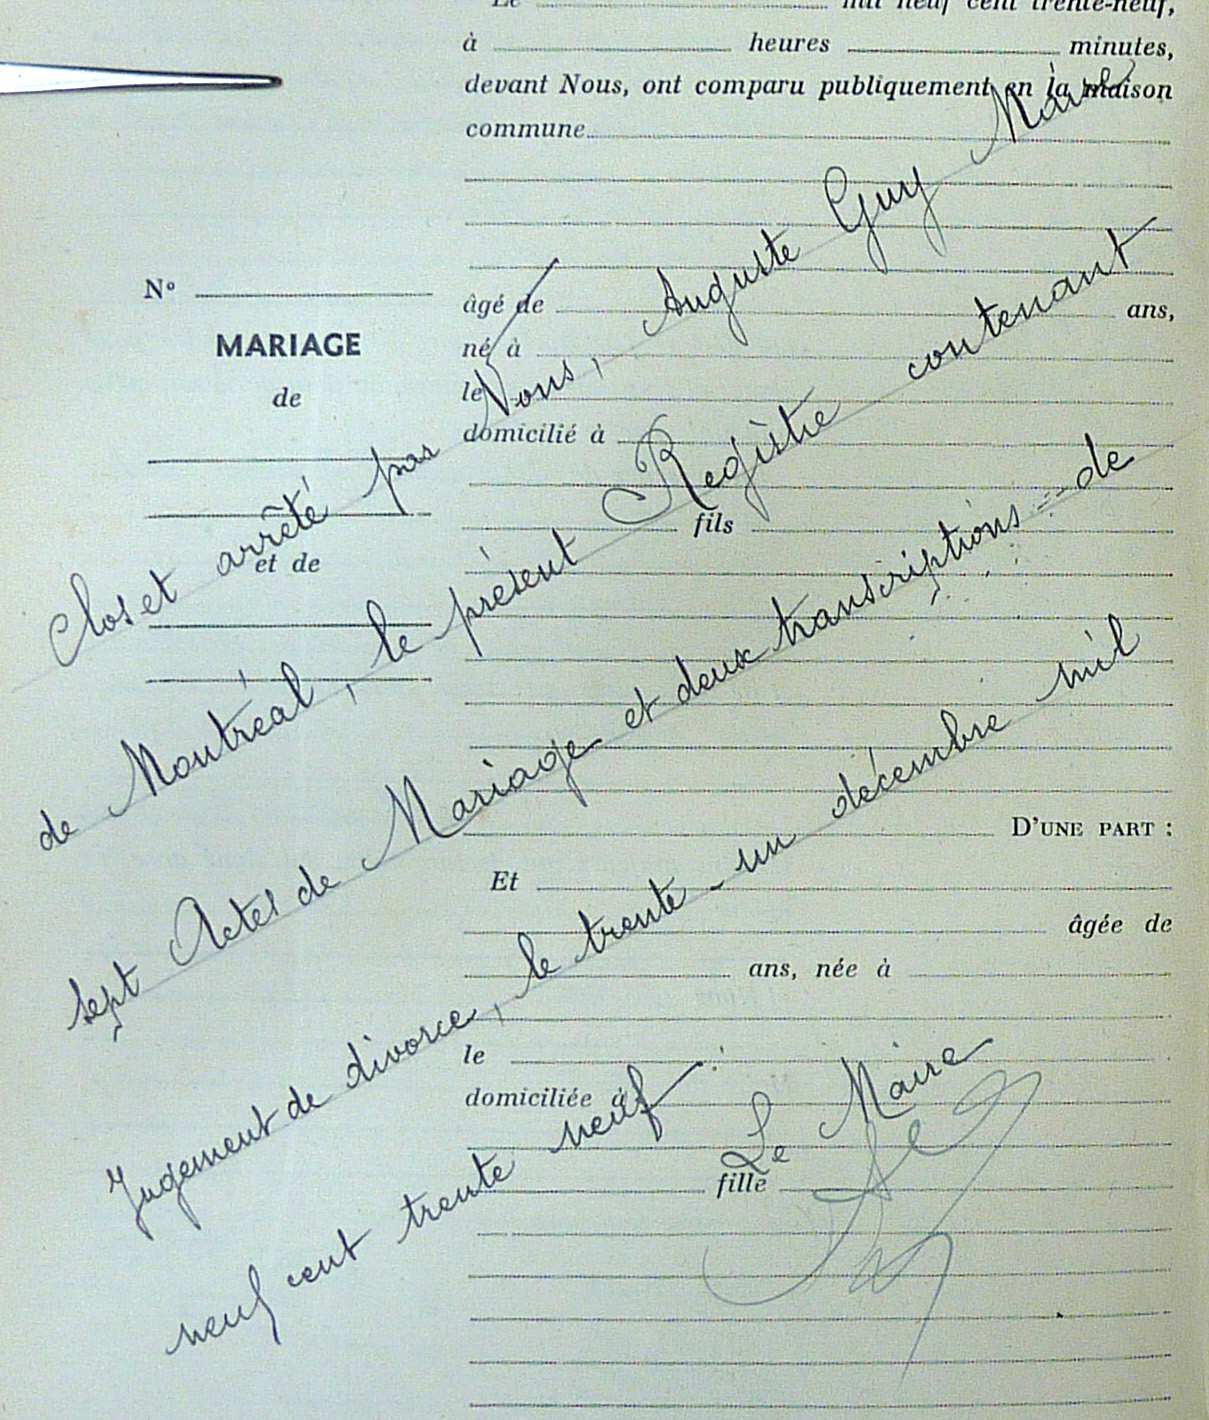 Le mil neuf cent trente-neuf,
à heures minutes,
devant Nous, ont comparu publiquement en la maison
commune
Nº
MARIAGE
de
et de
âgé de ans,
né à
le
domicilié à
fils
D'UNE PART :
Et
âgée de
ans, née à
le
domiciliée à
fille
Clos et arrêté par Nous, Auguste Guy Maire
de Montréal, le présent Registre contenant
sept Actes de Mariage et deux transcriptions de
Jugement de divorce, le trente-un décembre mil
neuf cent trente neuf.
Le Maire